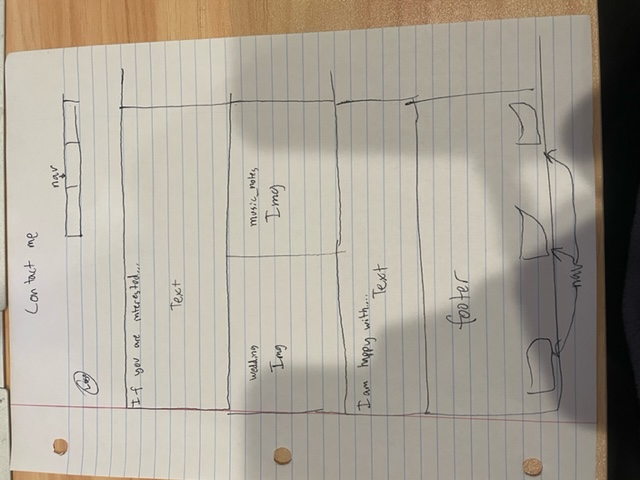 Contact me
nav
Logo
If you are interested...
Text
wedding
Img
music_notes
Img
I am happy with....
Text
footer
nav